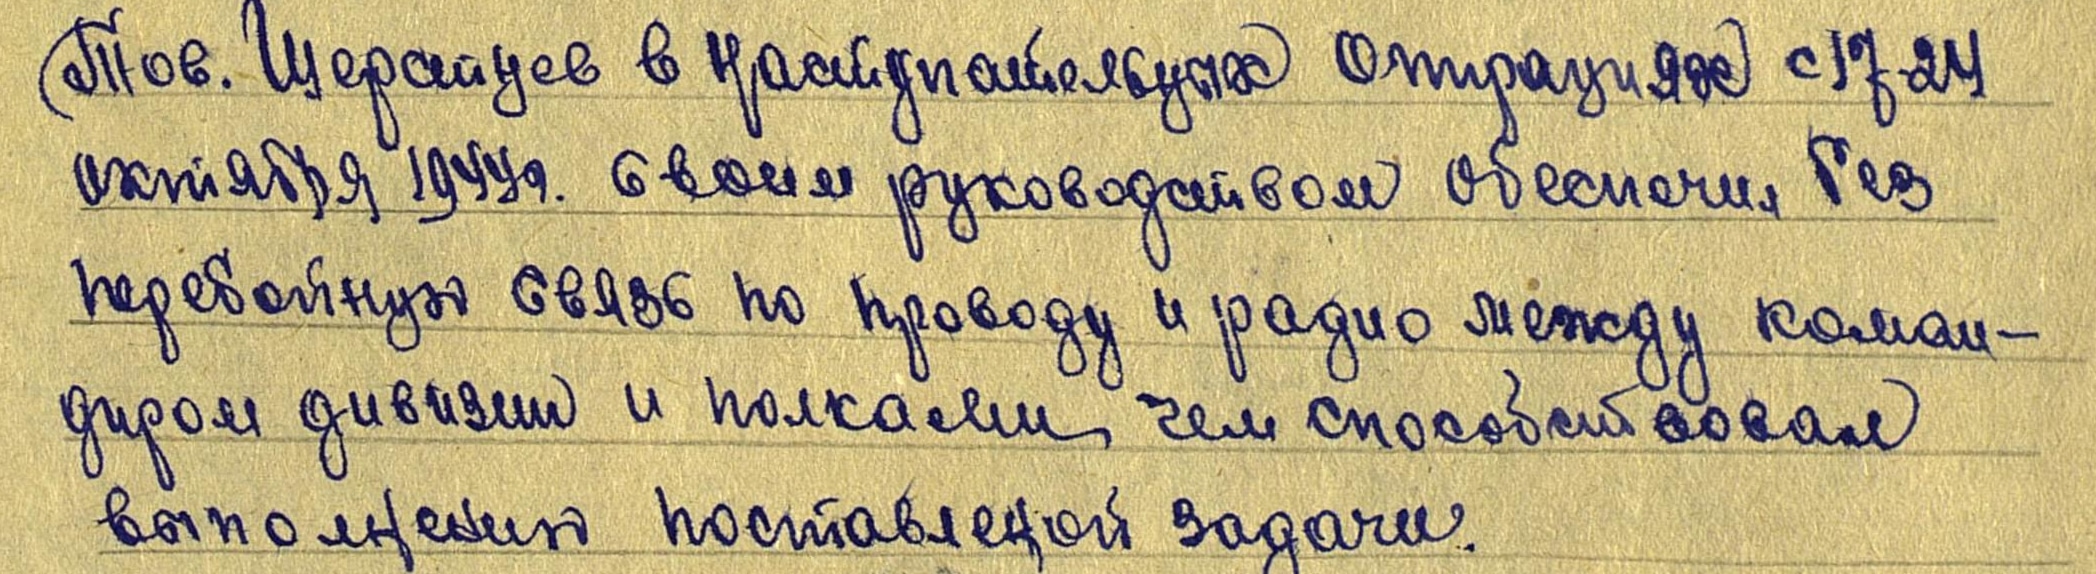 Тов. Щерстцев в наступательных операциях с 17-24
октября 1944г. своим руководством обеспечил без
перебойную связь по проводу и радио между коман-
диром дивизии и полками, чем способствовал
выполнению поставленой задачи.